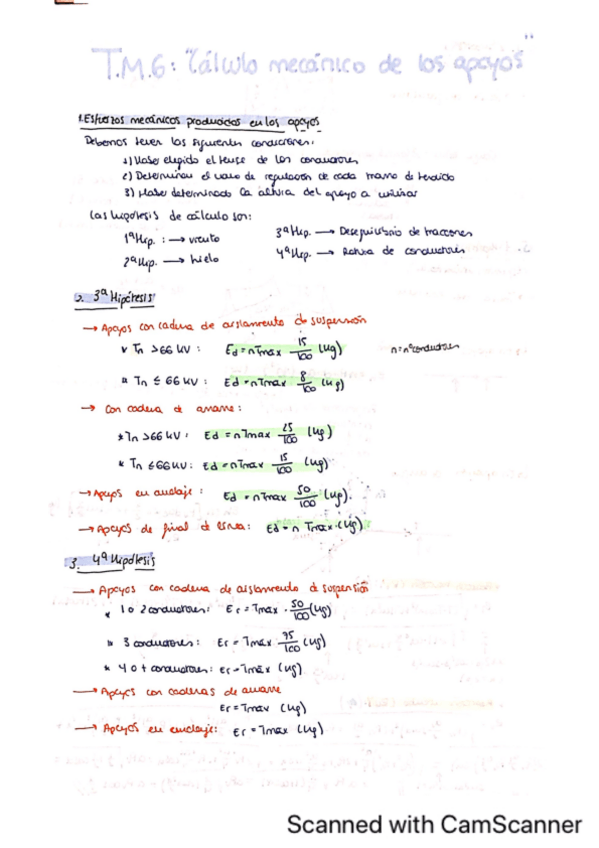 T.M.6: Cálculo mecánico de los apoyos
1. Esfuerzos mecánicos producidos en los apoyos
Debemos tener las siguientes condiciones:
1) Haber elegido el tense de los conductores
2) Determinar el vano de regulación de cada tramo de tendido
3) Haber determinado la altura del apoyo a utilizar
Las hipótesis de cálculo son:
1ª Hip. : → viento
3ª Hip. → Desequilibrio de tracciones
2ª Hip. → hielo
4ª Hip. → Rotura de conductores
2. 3ª Hipótesis
→ Apoyos con cadena de aislamiento d suspensión
Tn > 66 kV : Ed = n Tmax 15/100 (kg) n = nº conductores
Tn ≤ 66 kV : Ed = n Tmax 8/100 (kg)
→ Con cadena d amarre:
* Tn > 66 kV : Ed = n Tmax 25/100 (kg)
* Tn ≤ 66 kV : Ed = n Tmax 15/100 (kg)
→ Apoyos en anclaje : Ed = n Tmax 50/100 (kg).
→ Apoyos de final d línea: Ed = n Tmax (kg)
3. 4ª Hipótesis
→ Apoyos con cadena de aislamiento d suspensión
* 1 o 2 conductores: Er = Tmax · 50/100 (kg)
* 3 conductores : Er = Tmax 75/100 (kg)
* 4 o + conductores: Er = Tmax (kg)
→ Apoyos con cadenas de amarre
Er = Tmax (kg)
→ Apoyos en anclaje: Er = Tmax (kg)
Scanned with CamScanner